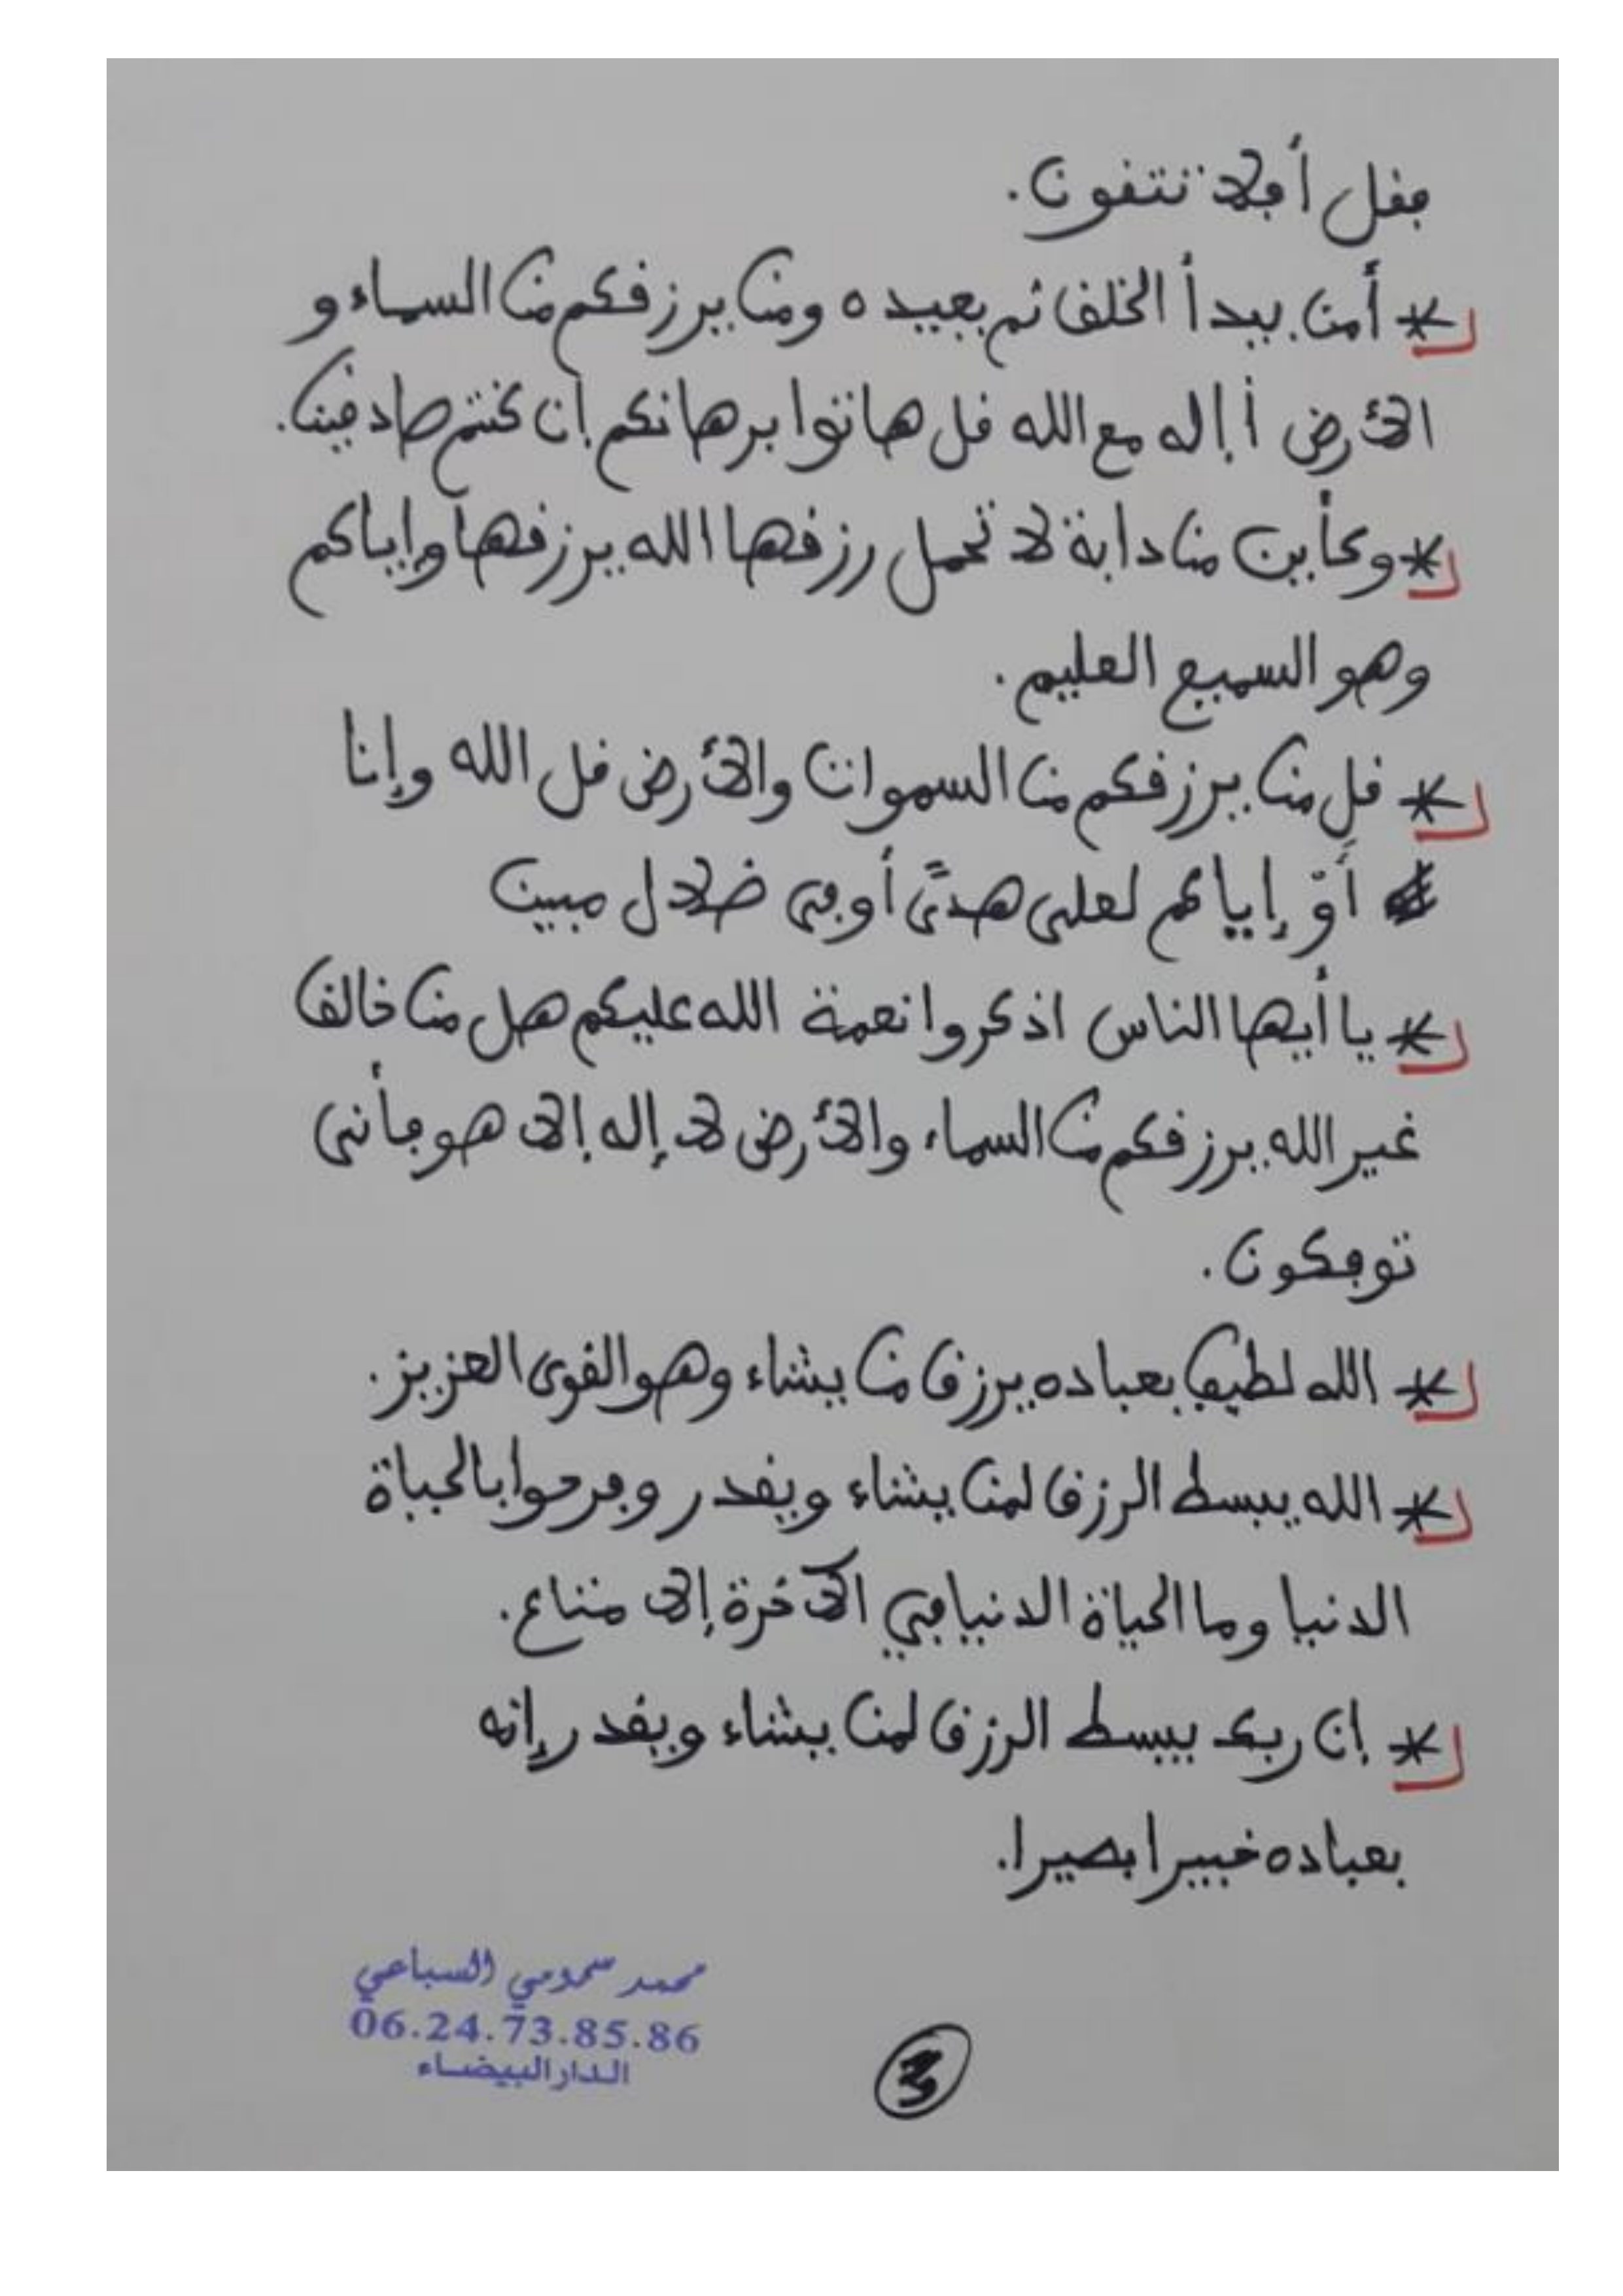 فقل أفلا تتقون.
* أمن يبدأ الخلق ثم يعيده ومن يرزقكم من السماء و
الأرض أإله مع الله قل هاتوا برهانكم إن كنتم صادقين.
* وكأين من دابة لا تحمل رزقها الله يرزقها وإياكم
وهو السميع العليم.
* قل من يرزقكم من السموات والأرض قل الله وإنا
أوّ إياكم لعلى هدًى أو في ضلال مبين
* يا أيها الناس اذكروا نعمة الله عليكم هل من خالق
غير الله يرزقكم من السماء والأرض لا إله إلا هو فأنى
توفكون.
* الله لطيف بعباده يرزق من يشاء وهو القوى العزيز.
* الله يبسط الرزق لمن يشاء ويقدر وفرحوا بالحياة
الدنيا وما الحياة الدنيا في الآخرة إلا متاع.
* إن ربك يبسط الرزق لمن يشاء ويقدر إنه
بعباده خبيرا بصيرا.
محمد سحمومي السباعي
06.24.73.85.86
الدار البيضاء
3